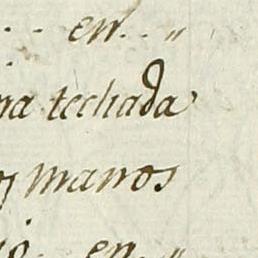 en . . "
na techada
os manos
en "